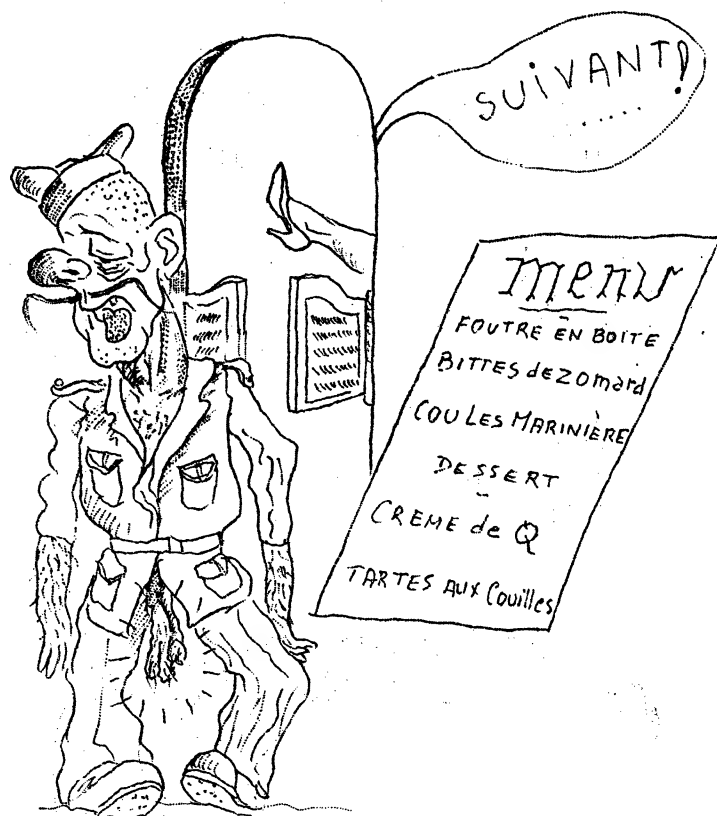 SUiVANT!
.....
menu
FOUTRE EN BOITE
BITTES de ZOmard
COU LES MARINIÈRE
DESSERT
CREME de Q
TARTES AUX Couilles